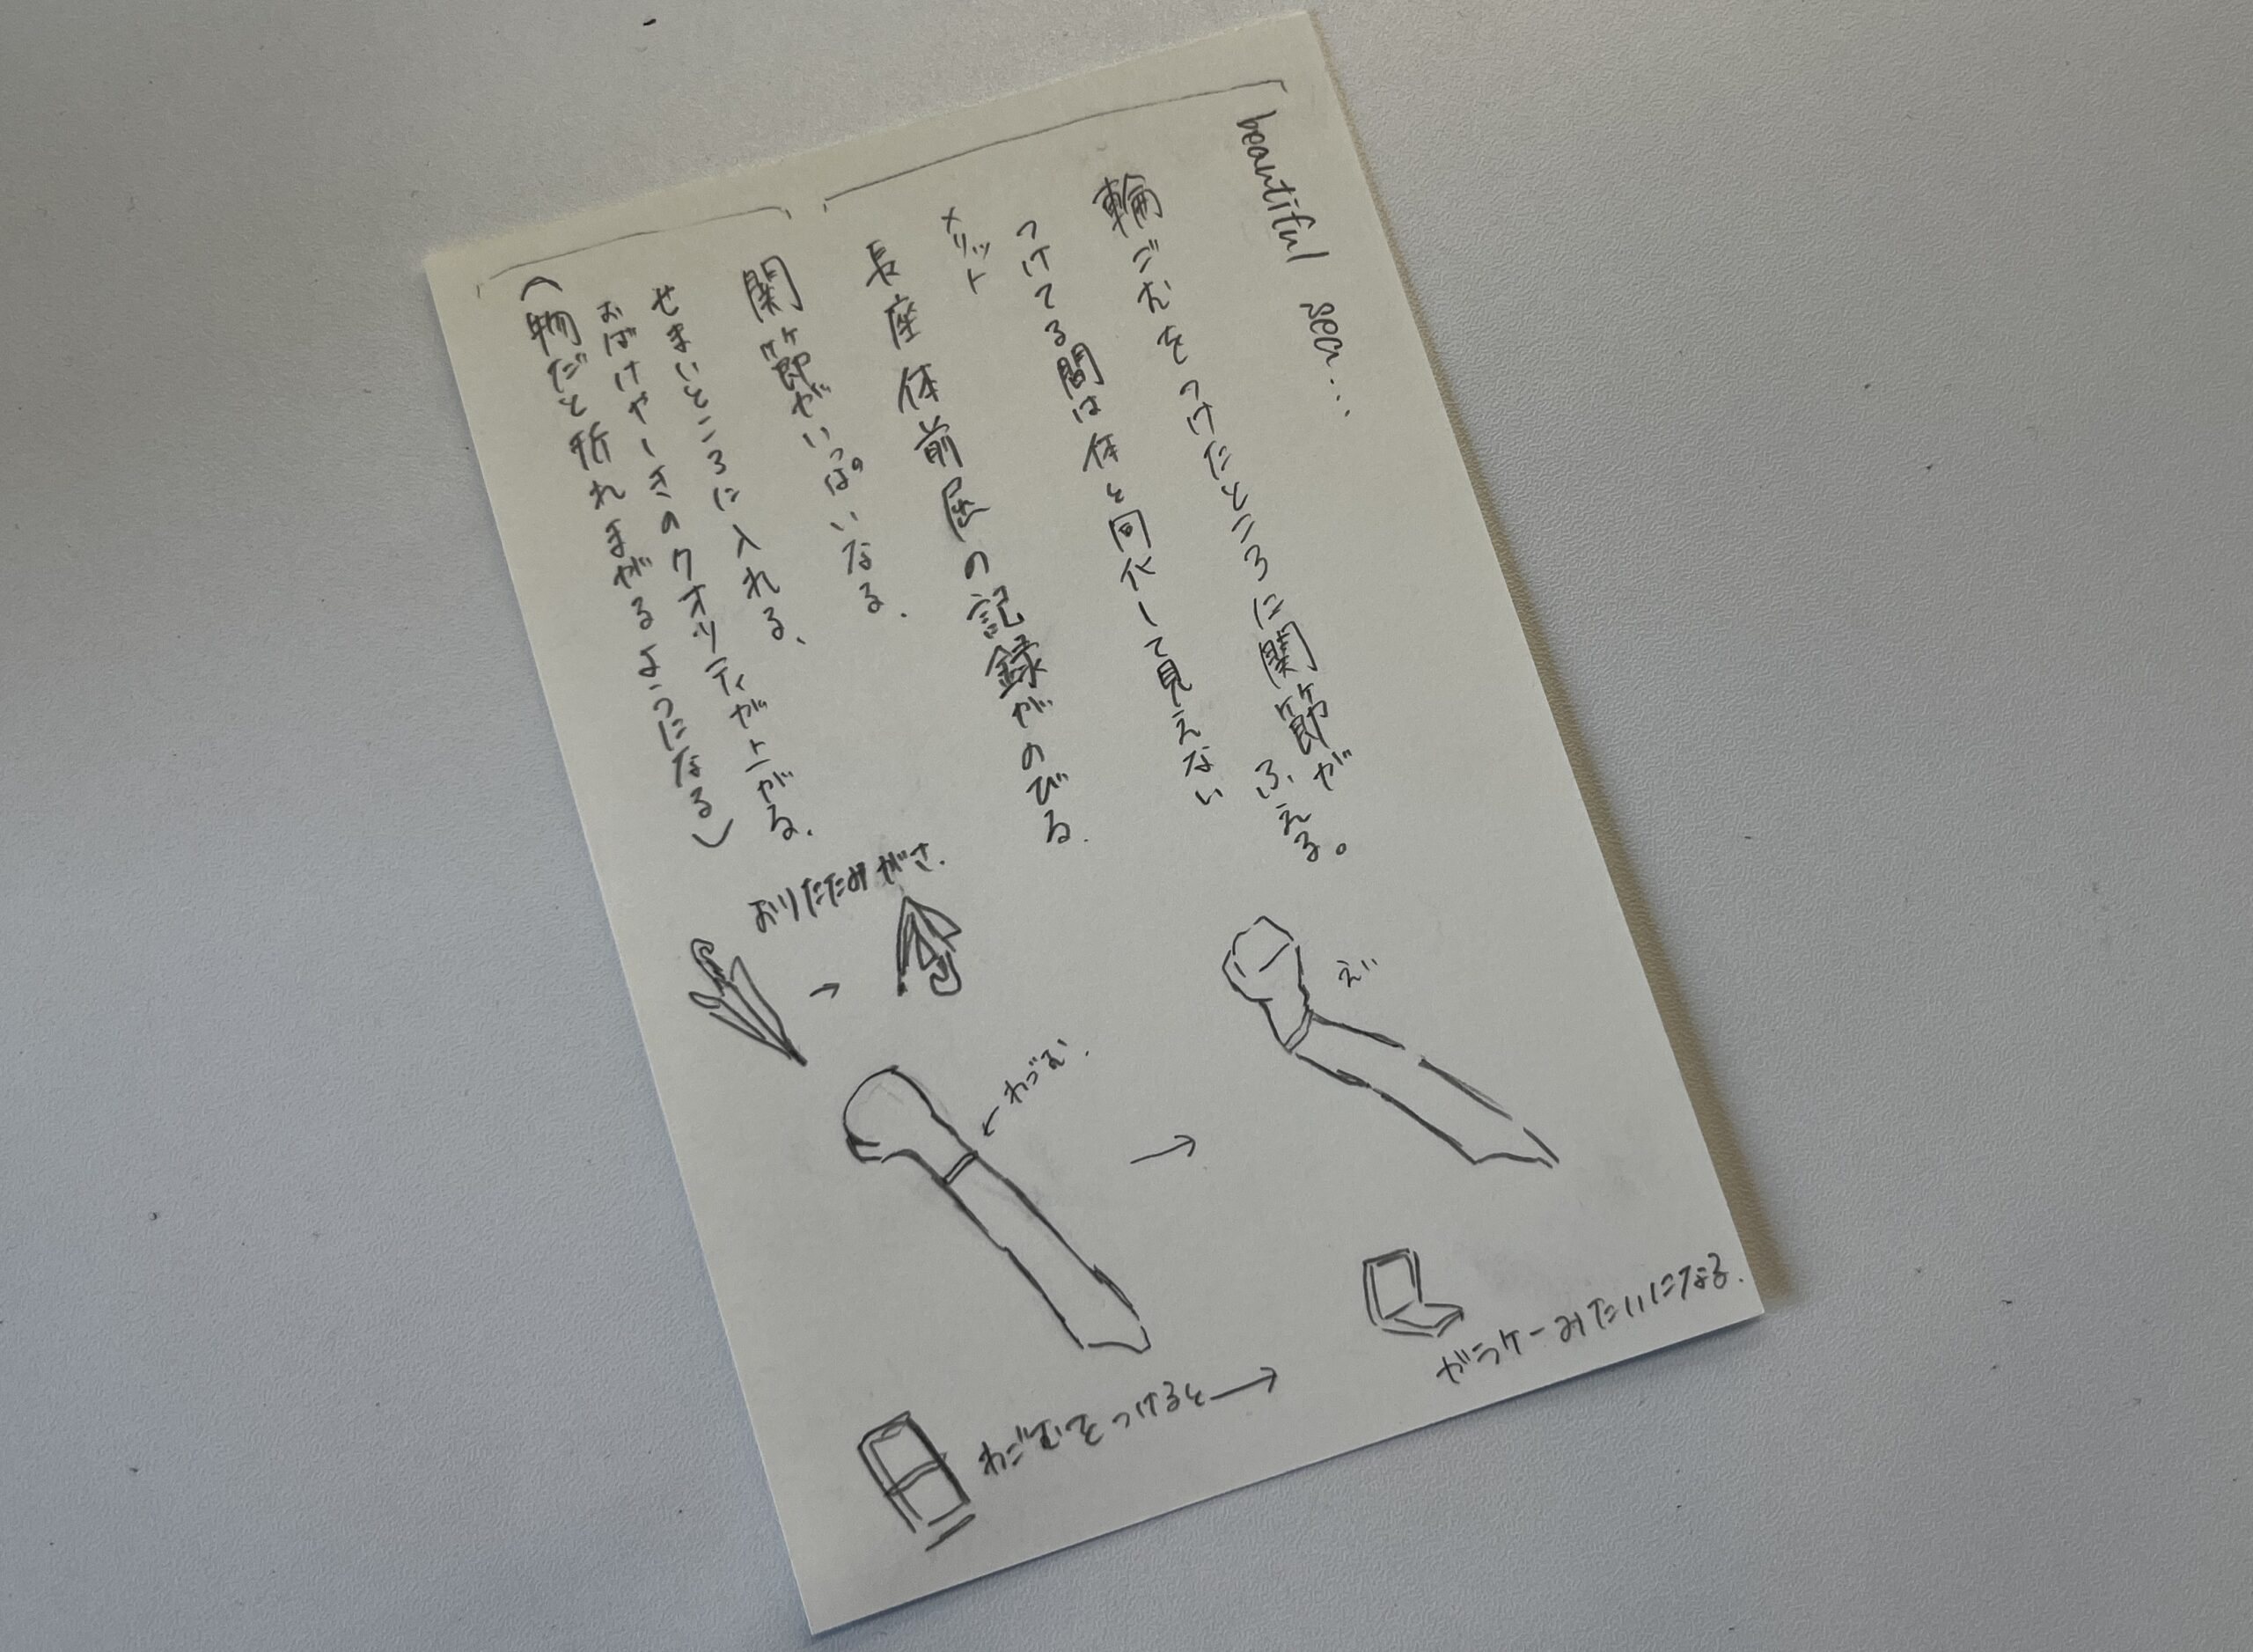 beautiful sea...
輪ごむをつけたところに関節が
ふえる。
つけてる間は体と同化して見えない
メリット
長座体前屈の記録がのびる.
関節がいっぱいなる.
せまいところに入れる、
おばけやしきのクオリティが上がる.
(物だと折れまがるようになる)
おりたたみがさ.
→
わごむ.
→
わごむをつけると→
ガラケーみたいになる.